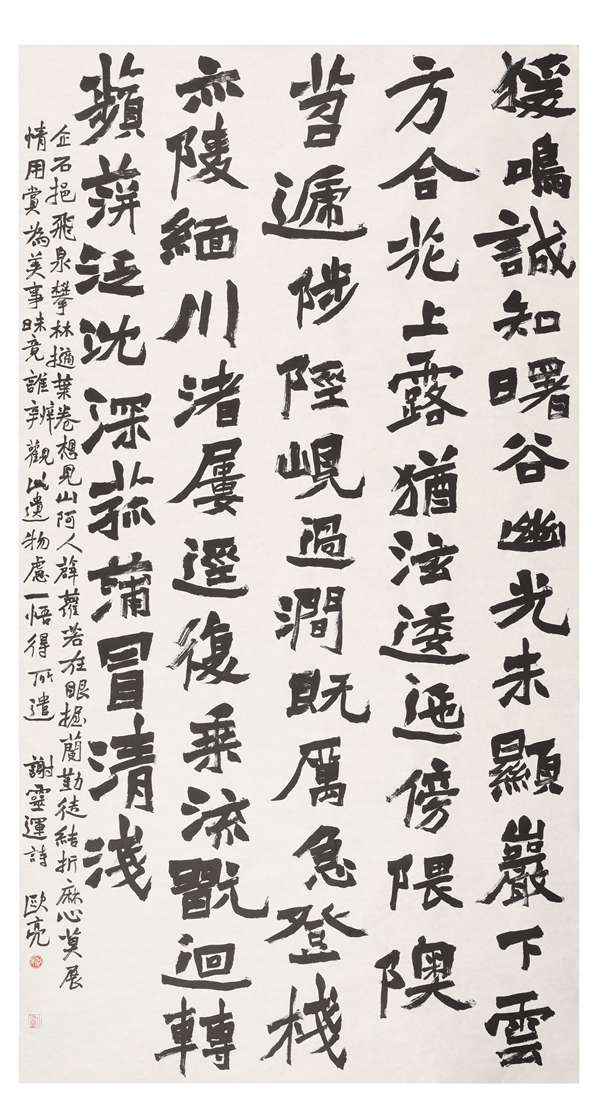 猨鳴誠知曙谷幽光未顯巖下雲
方合花上露猶泫逶迤傍隈隩
苕遞陟陘峴過澗既厲急登棧
亦陵緬川渚屢逕復乘流翫迴轉
蘋蓱泛沈深菰蒲冒清淺
企石挹飛泉攀林擿葉卷想見山阿人薜蘿若在眼握蘭勤徒結折麻心莫展
情用賞為美事昧竟誰辨觀此遺物慮一悟得所遣 謝靈運詩 歐亮